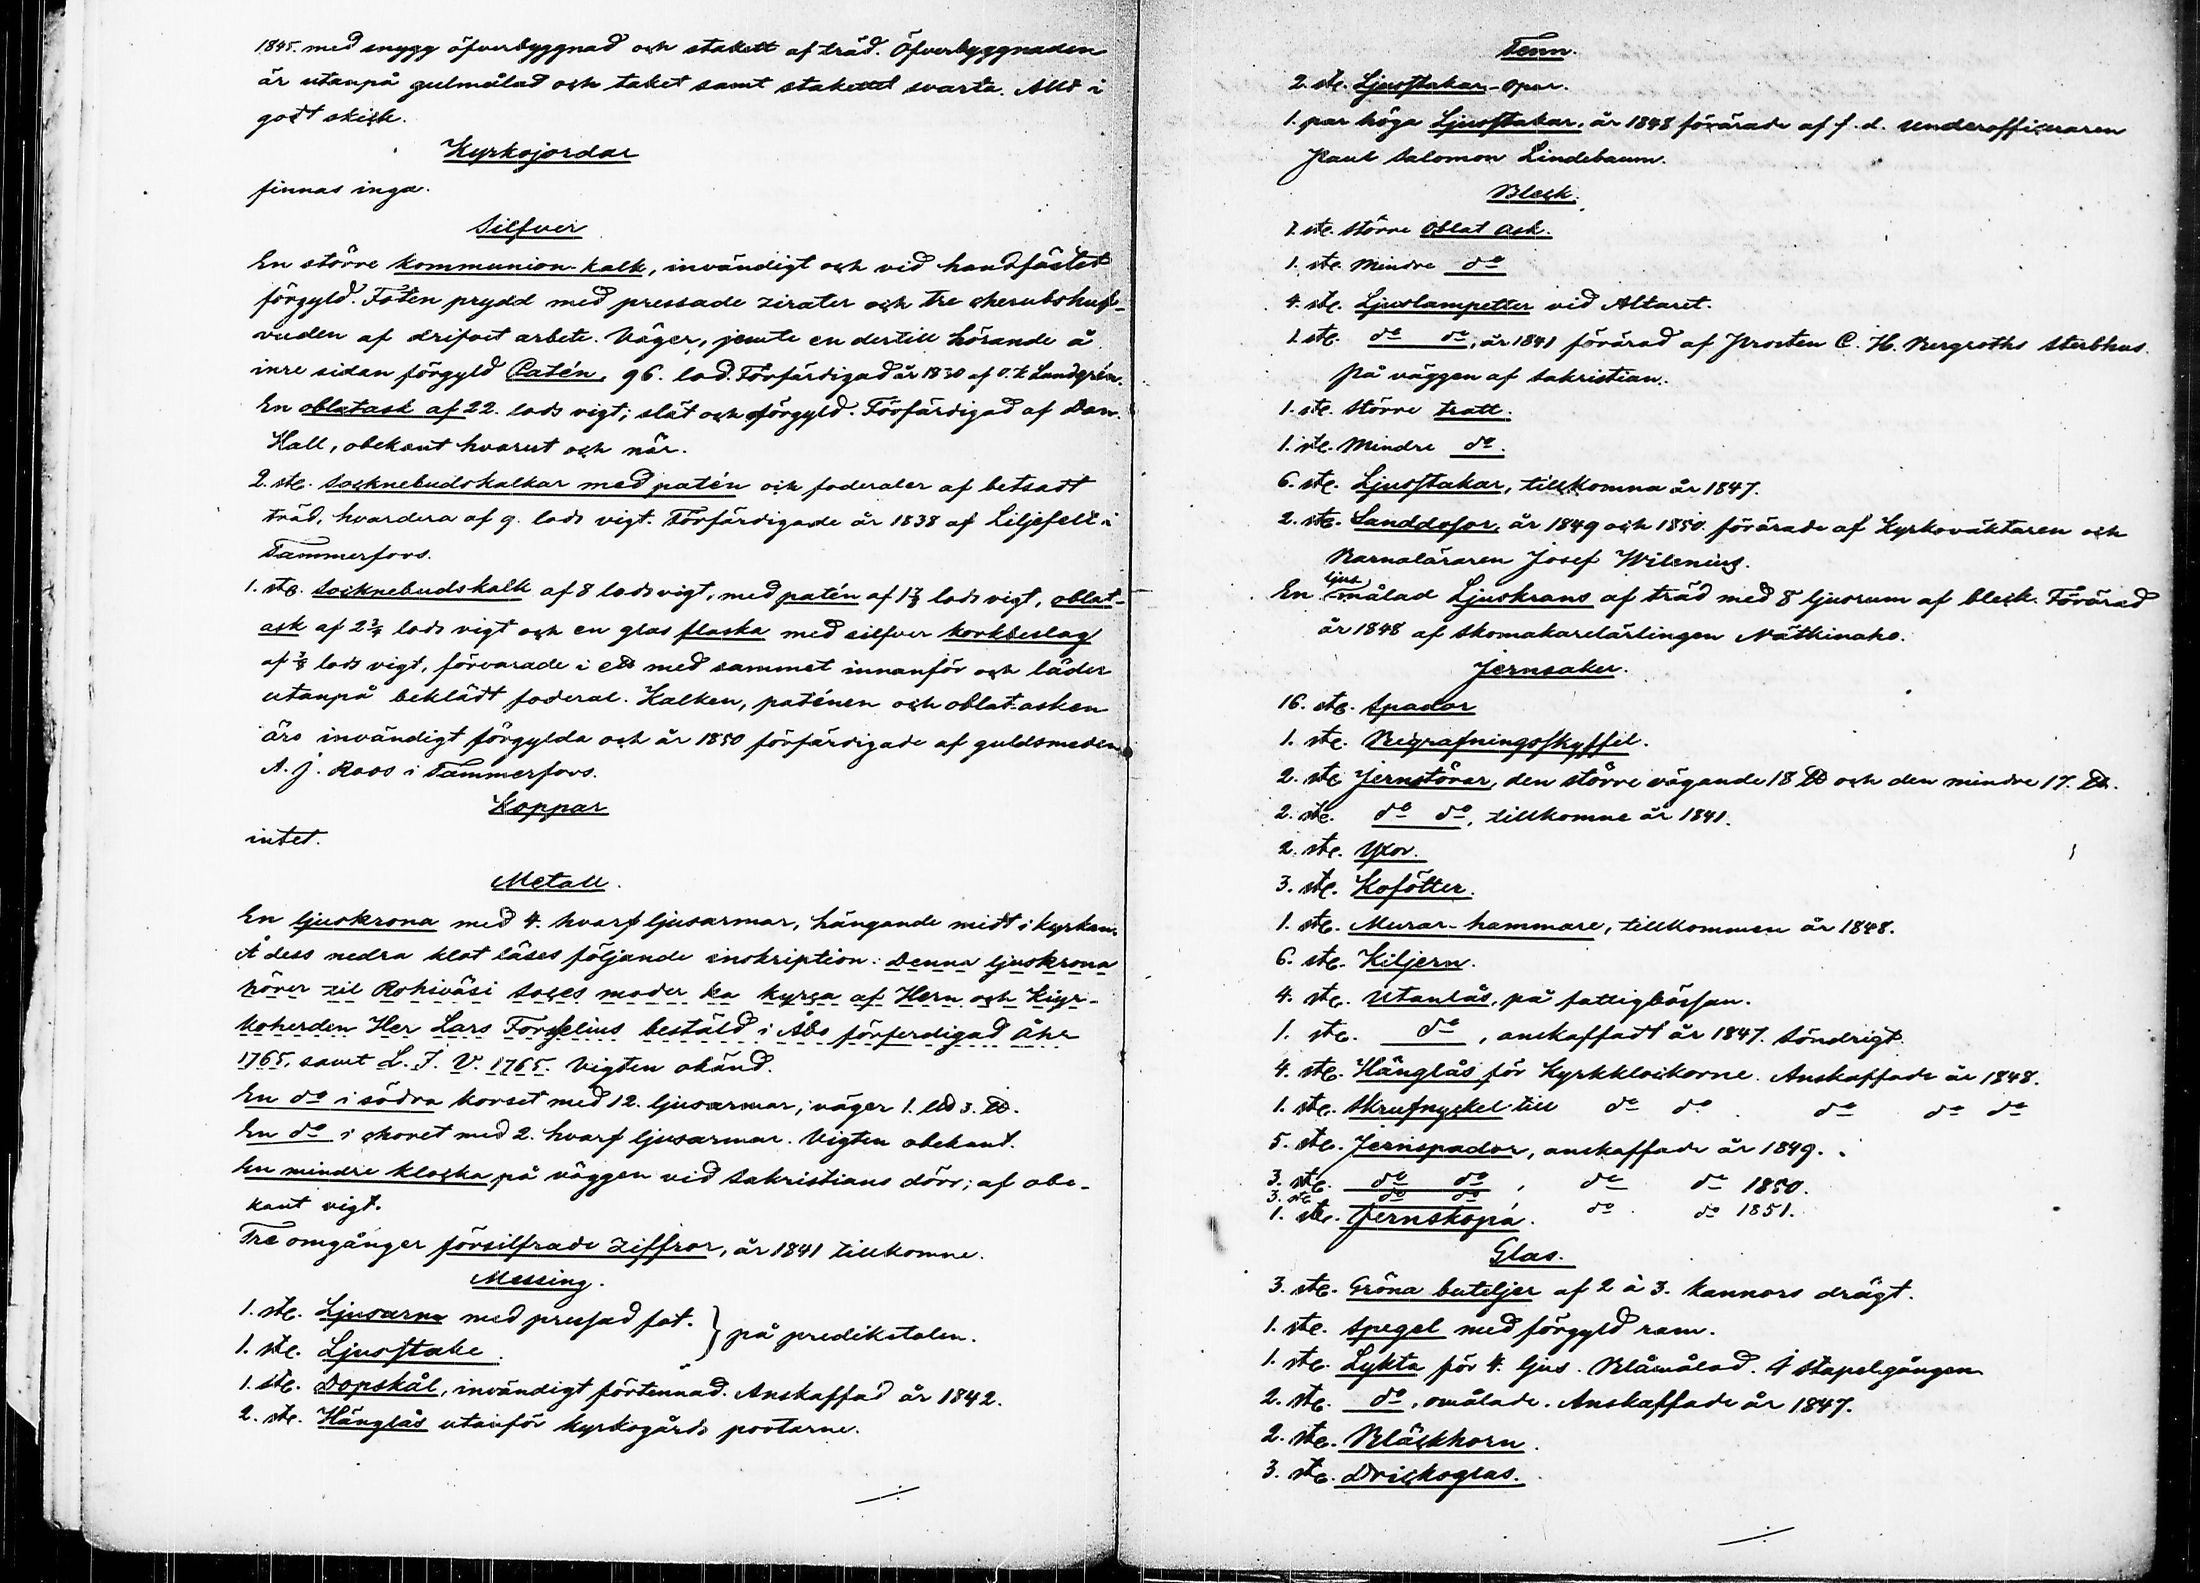 1845. med snygg öfverbyggnad och stakett af träd. Öfverbyggnaden
är utanpå gulmålad och taket samt stakettet svarta. Allt i
godt skick.
Kyrkojordar
finnas inga.
Silfver
En större kommunion-kalk, invändigt och vid handfästet
förgyld. Foten prydd med pressade zirater och tre cherubshuf-
vuden af drifvet arbete. Väger, jemte en dertill hörande å
inre sidan förgyld Patén, 96. lod. Förfärdigad år 1830 af Lundgrén.
En oblatask af 22. lods vigt; slät och oförgyld. Förfärdigad af Dan.
Hall, obekant hvarest och när.
2. st. Socknebudskalkar med patén och foderaler af betsadt
träd, hvardera af 9. lods vigt. Förfärdigade år 1838 af Liljefelt i
Tammerfors.
1. st. Socknebudskalk af 8 lods vigt, med patén af 1⅞ lods vigt, oblat-
ask af 2¾ lods vigt och en glas flaska med silfver korkbeslag
af ⅞ lods vigt, förvarade i ett med sammet innanför och läder
utanpå beklädt foderal. Kalken, paténen och oblat-asken
äro invändigt förgylda och år 1850 förfärdigade af guldsmeden
A. J. Roos i Tammerfors.
Koppar
intet.
Metall.
En ljuskrona med 4. hvarf ljusarmar, hängande midt i kyrkan.
Å dess nedra klot läses följande inskription: Denna ljuskrona
hörer til Rohiväsi Soces moder ka kyrca af Hern och Kiyr-
koherden Her Lars Forsselius bestäld i Åbo förferdigad Åhr
1765. samt L. F. V. 1765. Vigten okänd.
En do i södra korset med 12. ljusarmar; väger 1. L℔ 3. ℔.
En do i choret med 2. hvarf ljusarmar. Vigten obekant.
En mindre klocka på väggen vid Sakristians dörr; af obe-
kant vigt.
Tre omgånger försilfrade ziffror, år 1841 tillkomne.
Messing.
1. st. Ljusarm med pressad fot. } på predikstolen.
1. st. Ljusstake.
1. st. Dopskål, invändigt förtennad. Anskaffad år 1842.
2. st. Hänglås utanför kyrkogårds portarne.
Tenn.
2. st. Ljusstakar - opar.
1. par höga Ljusstakar, år 1848 förärade af f. d. Underofficeraren
Paul Salomon Lindebaum.
Bleck.
1. st. större Oblat ask.
1. st. Mindre do
4. st. Ljuslampetter vid Altaret.
1. st. do do, år 1841 förärad af Prosten C. H. Bergroths Sterbhus.
På väggen af Sakristian.
1. st. Större tratt.
1. st. Mindre do.
6. st. Ljusstakar, tillkomna år 1847.
2. st. Sanddosor, år 1849 och 1850. förärade af Kyrkovaktaren och
Barnaläraren Josef Wilenius.
En ljus målad Ljuskrans af träd med 8 ljusrum af bleck. Förärad
år 1848 af Skomakarelärlingen Näthinaho.
Jernsaker.
16. st. Spador
1. st. Begrafningsskyffel.
2. st. Jernstörar, den större vägande 18 ℔ och den mindre 17. ℔.
2. st. do do, tillkomne år 1841.
2. st. Yxor.
3. st. Kofötter.
1. st. Murar-hammare, tillkommen år 1848.
6. st. Kiljern.
4. st. Utanlås, på fattigbössan.
1. st. do, anskaffadt år 1847. Söndrigt.
4. st. Hänglås för Kyrkklockorne. Anskaffade år 1848.
1. st. Skrufnyckel till do do. do do do
5. st. Jernspador, anskaffade år 1849.
3. st. do do, do do 1850.
3. st. do do do do 1851.
1. st. Jernskopa.
Glas.
3. st. Gröna buteljer af 2 à 3. kannors drägt.
1. st. Spegel med förgyld ram.
1. st. Lykta för 4. ljus. Blåmålad. I Stapelgången
2. st. do, omålade. Anskaffade år 1847.
2. st. Bläckhorn.
3. st. Dricksglas.